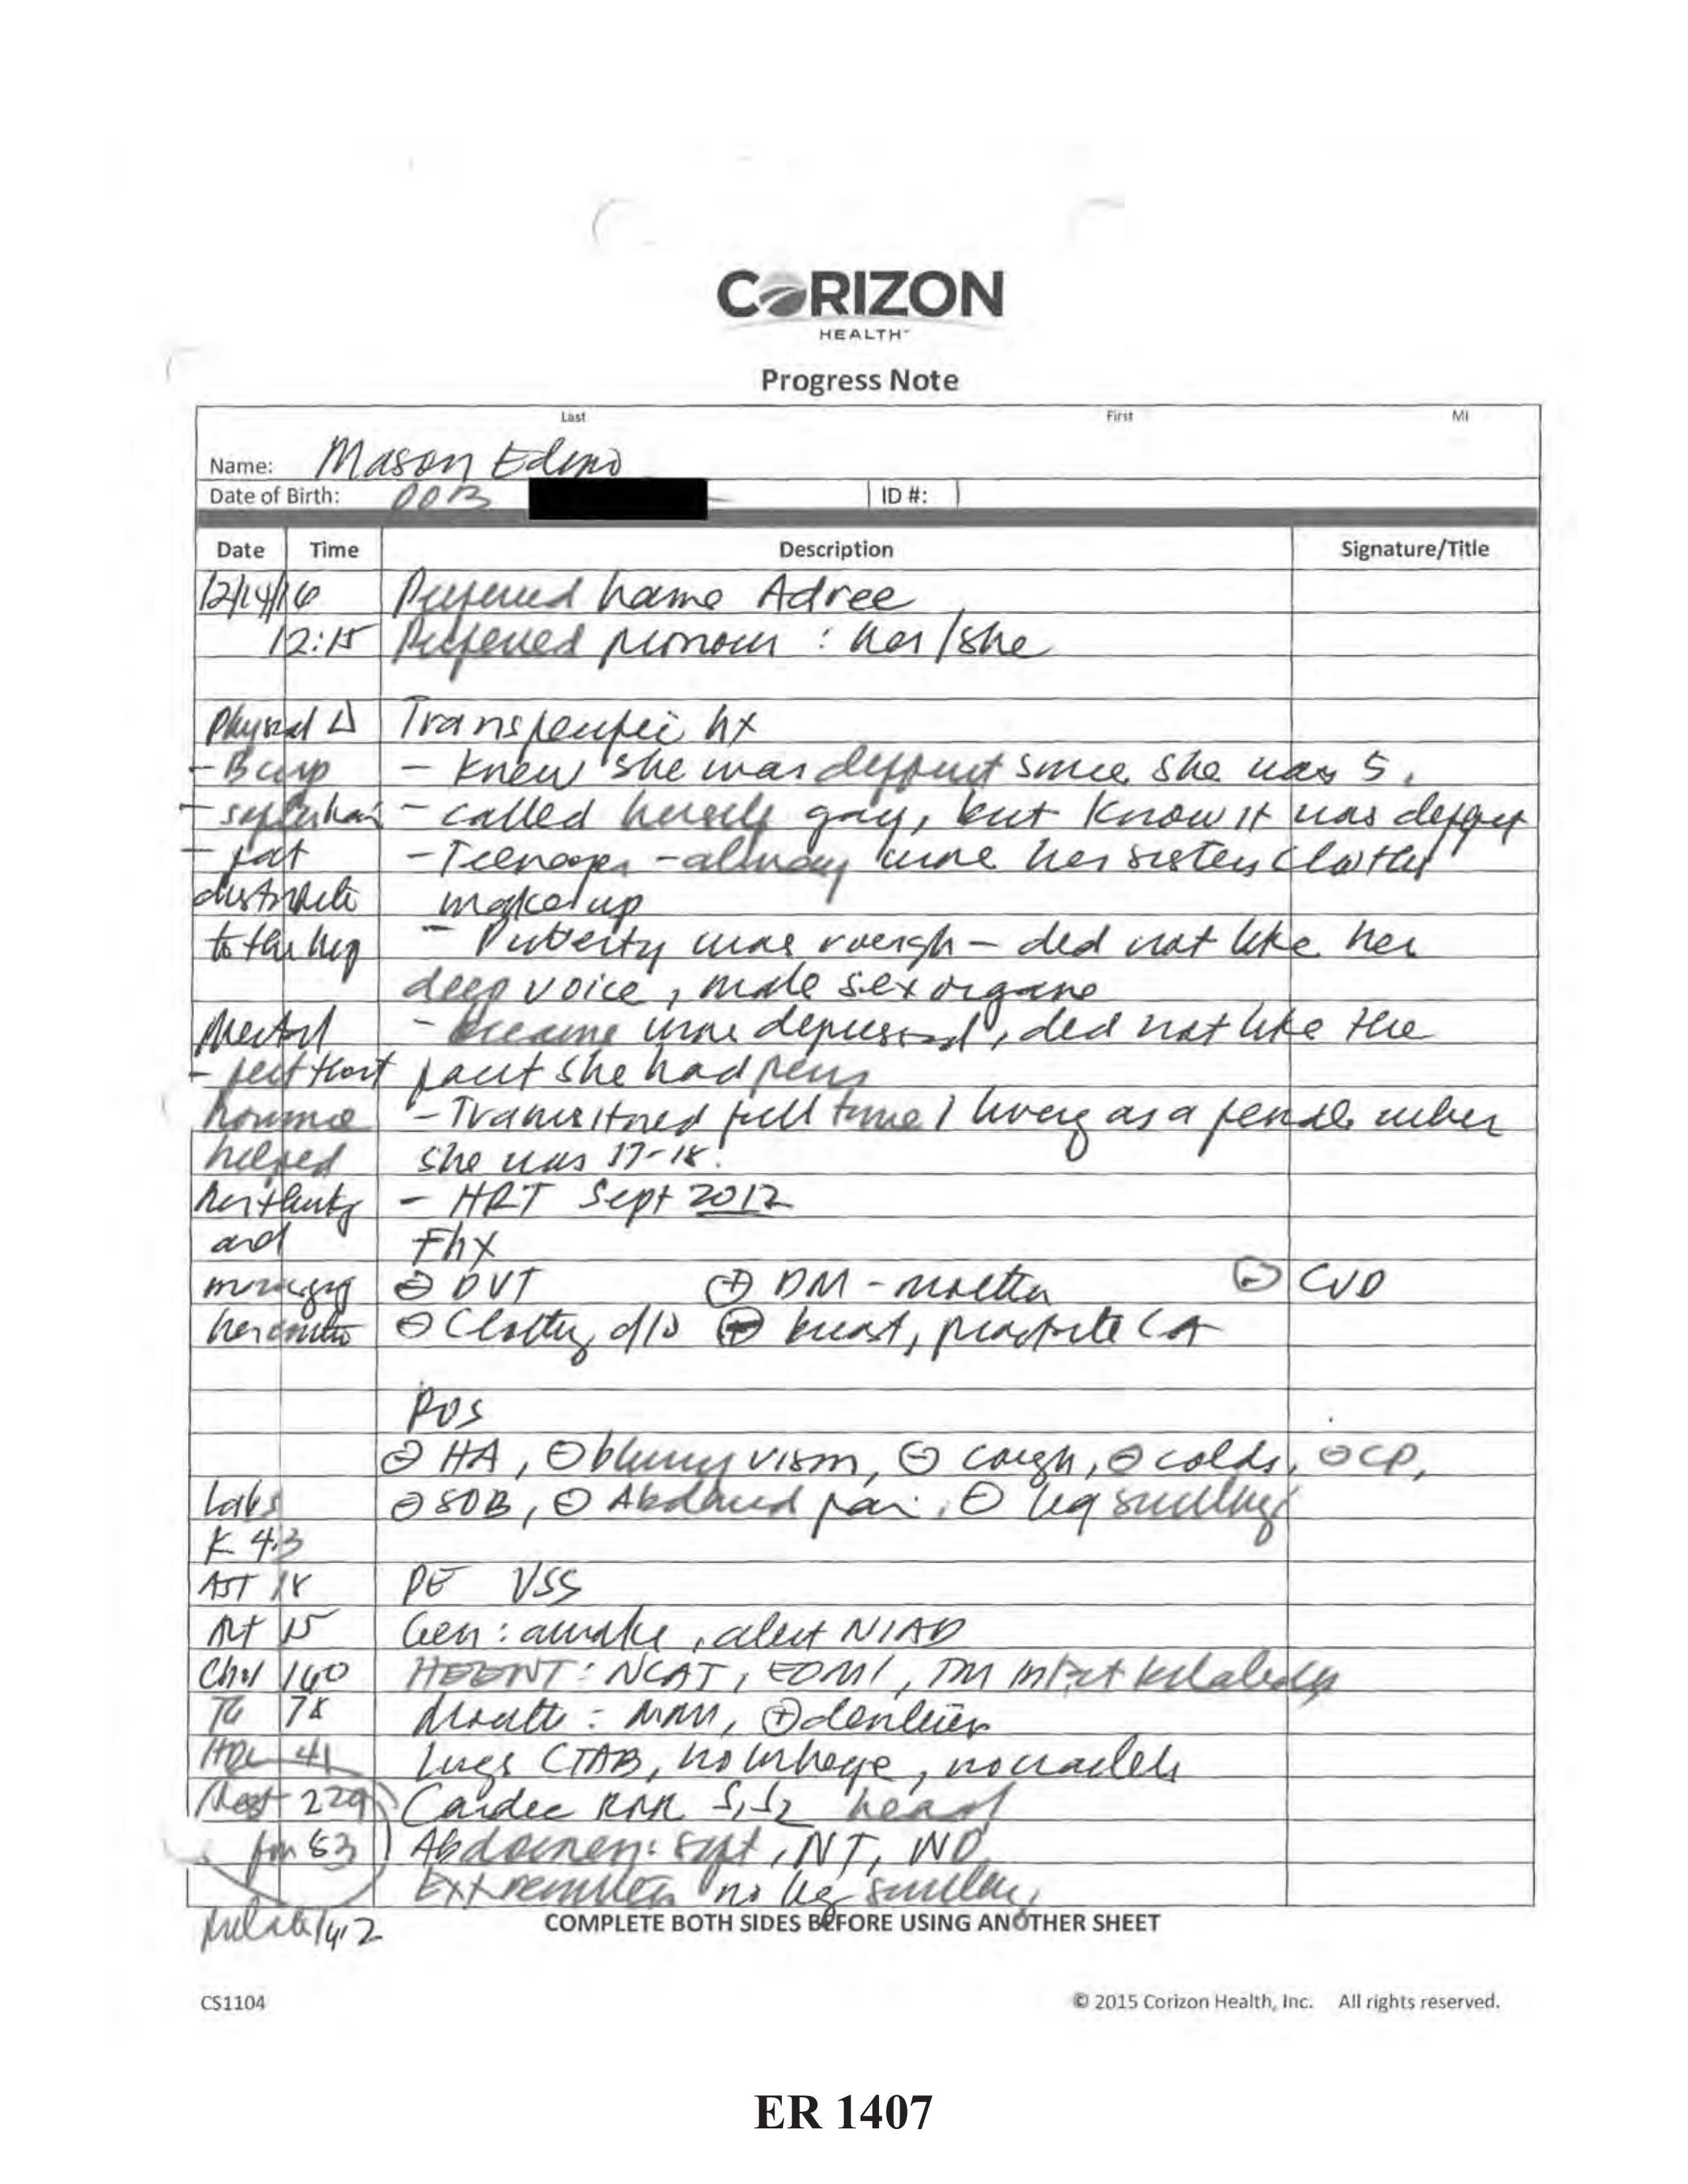 CORIZON
HEALTH
Progress Note
Last First MI
Name: Mason Edmo
Date of Birth: DOB ID #:
Date Time Description Signature/Title
12/14/16 Preferred name Adree
12:15 Preferred pronoun : her/she
Physical Δ hx
- B cup - knew she was different since she was 5.
- softer hair - called herself gay, but know it was different
- fat - Teenager - always wore her sisters clothes
distribute makeup
to the hip - Puberty was rough - did not like her
deep voice, male sex organs
Mental - became more depressed, did not like the
- felt that fact she had penis
hormone - Transitioned full time / living as a female when
helped she was 17-18.
her - HRT Sept 2012
and Fhx
⊖ DVT ⊕ DM - mother ⊖ CVD
her ⊖ Clotting d/o breast, prostate CA
ROS
⊖ HA, ⊖ blurry vision, ⊖ cough, ⊖ colds, ⊖ CP,
Labs ⊖ SOB, ⊖ Abdominal pain, ⊖ leg swelling
K 4.3
AST 18 PE VSS
Alt 15 Gen: awake, alert NIAD
Chol 140 HEENT: NCAT, EOMI, TM intact bilaterally
TG 78 Mouth: MMM, ⊕
HDL 41 Lungs CTAB, no wheeze, no crackles
229 Cardiac RRR S1S2 heard
83 Abdomen: soft, NT, ND
Extremities no leg swelling
14.2
COMPLETE BOTH SIDES BEFORE USING ANOTHER SHEET
CS1104 © 2015 Corizon Health, Inc. All rights reserved.
ER 1407